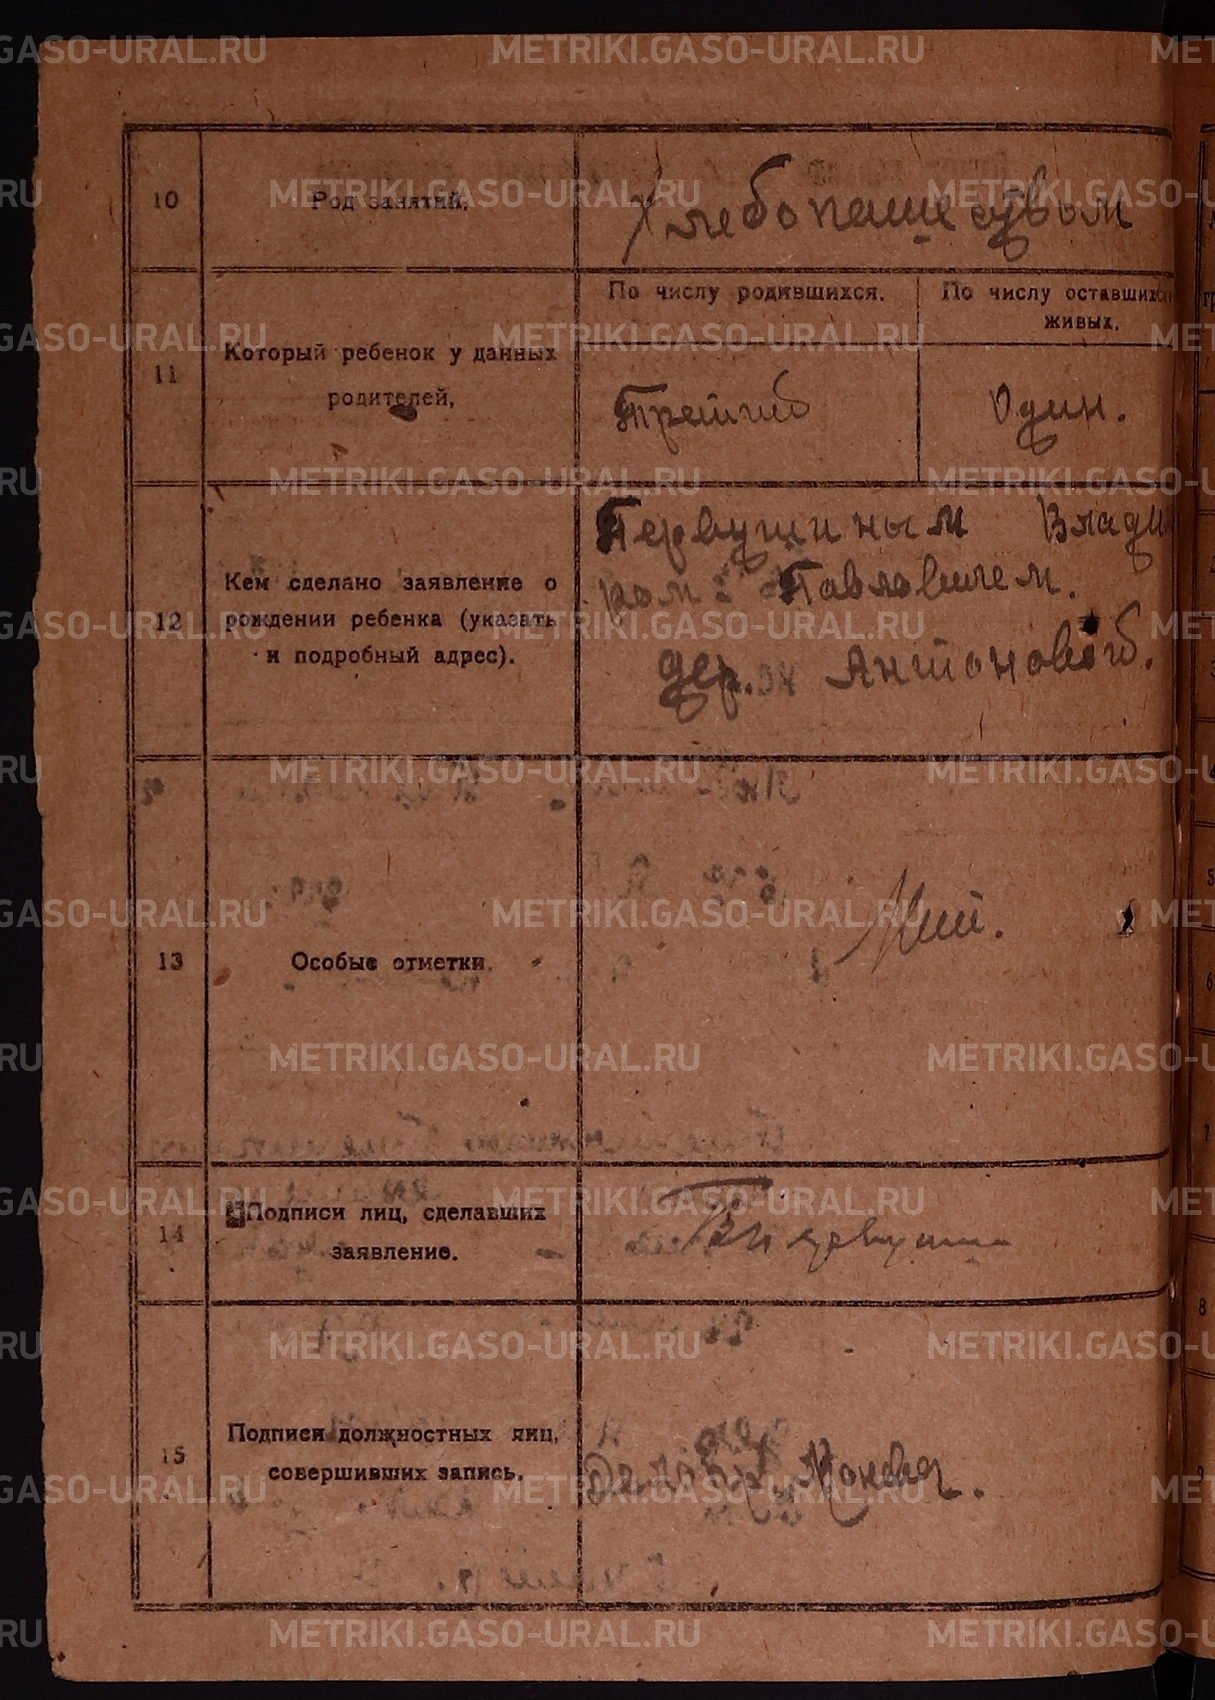 10
Род занятий.
Хлебопашеством
11
Который ребенок у данных
родителей,
По числу родившихся.
По числу оставшихся
живых.
Третий
Один.
12
Кем сделано заявление о
рождении ребенка (указать
и подробный адрес).
Первушиным Влади
ром Павловичем.
дер. Антоновой.
13
Особые отметки.
14
Подписи лиц, сделавших
заявление.
15
Подписи должностных лиц,
совершивших запись.
Конева.
METRIKI.GASO-URAL.RU